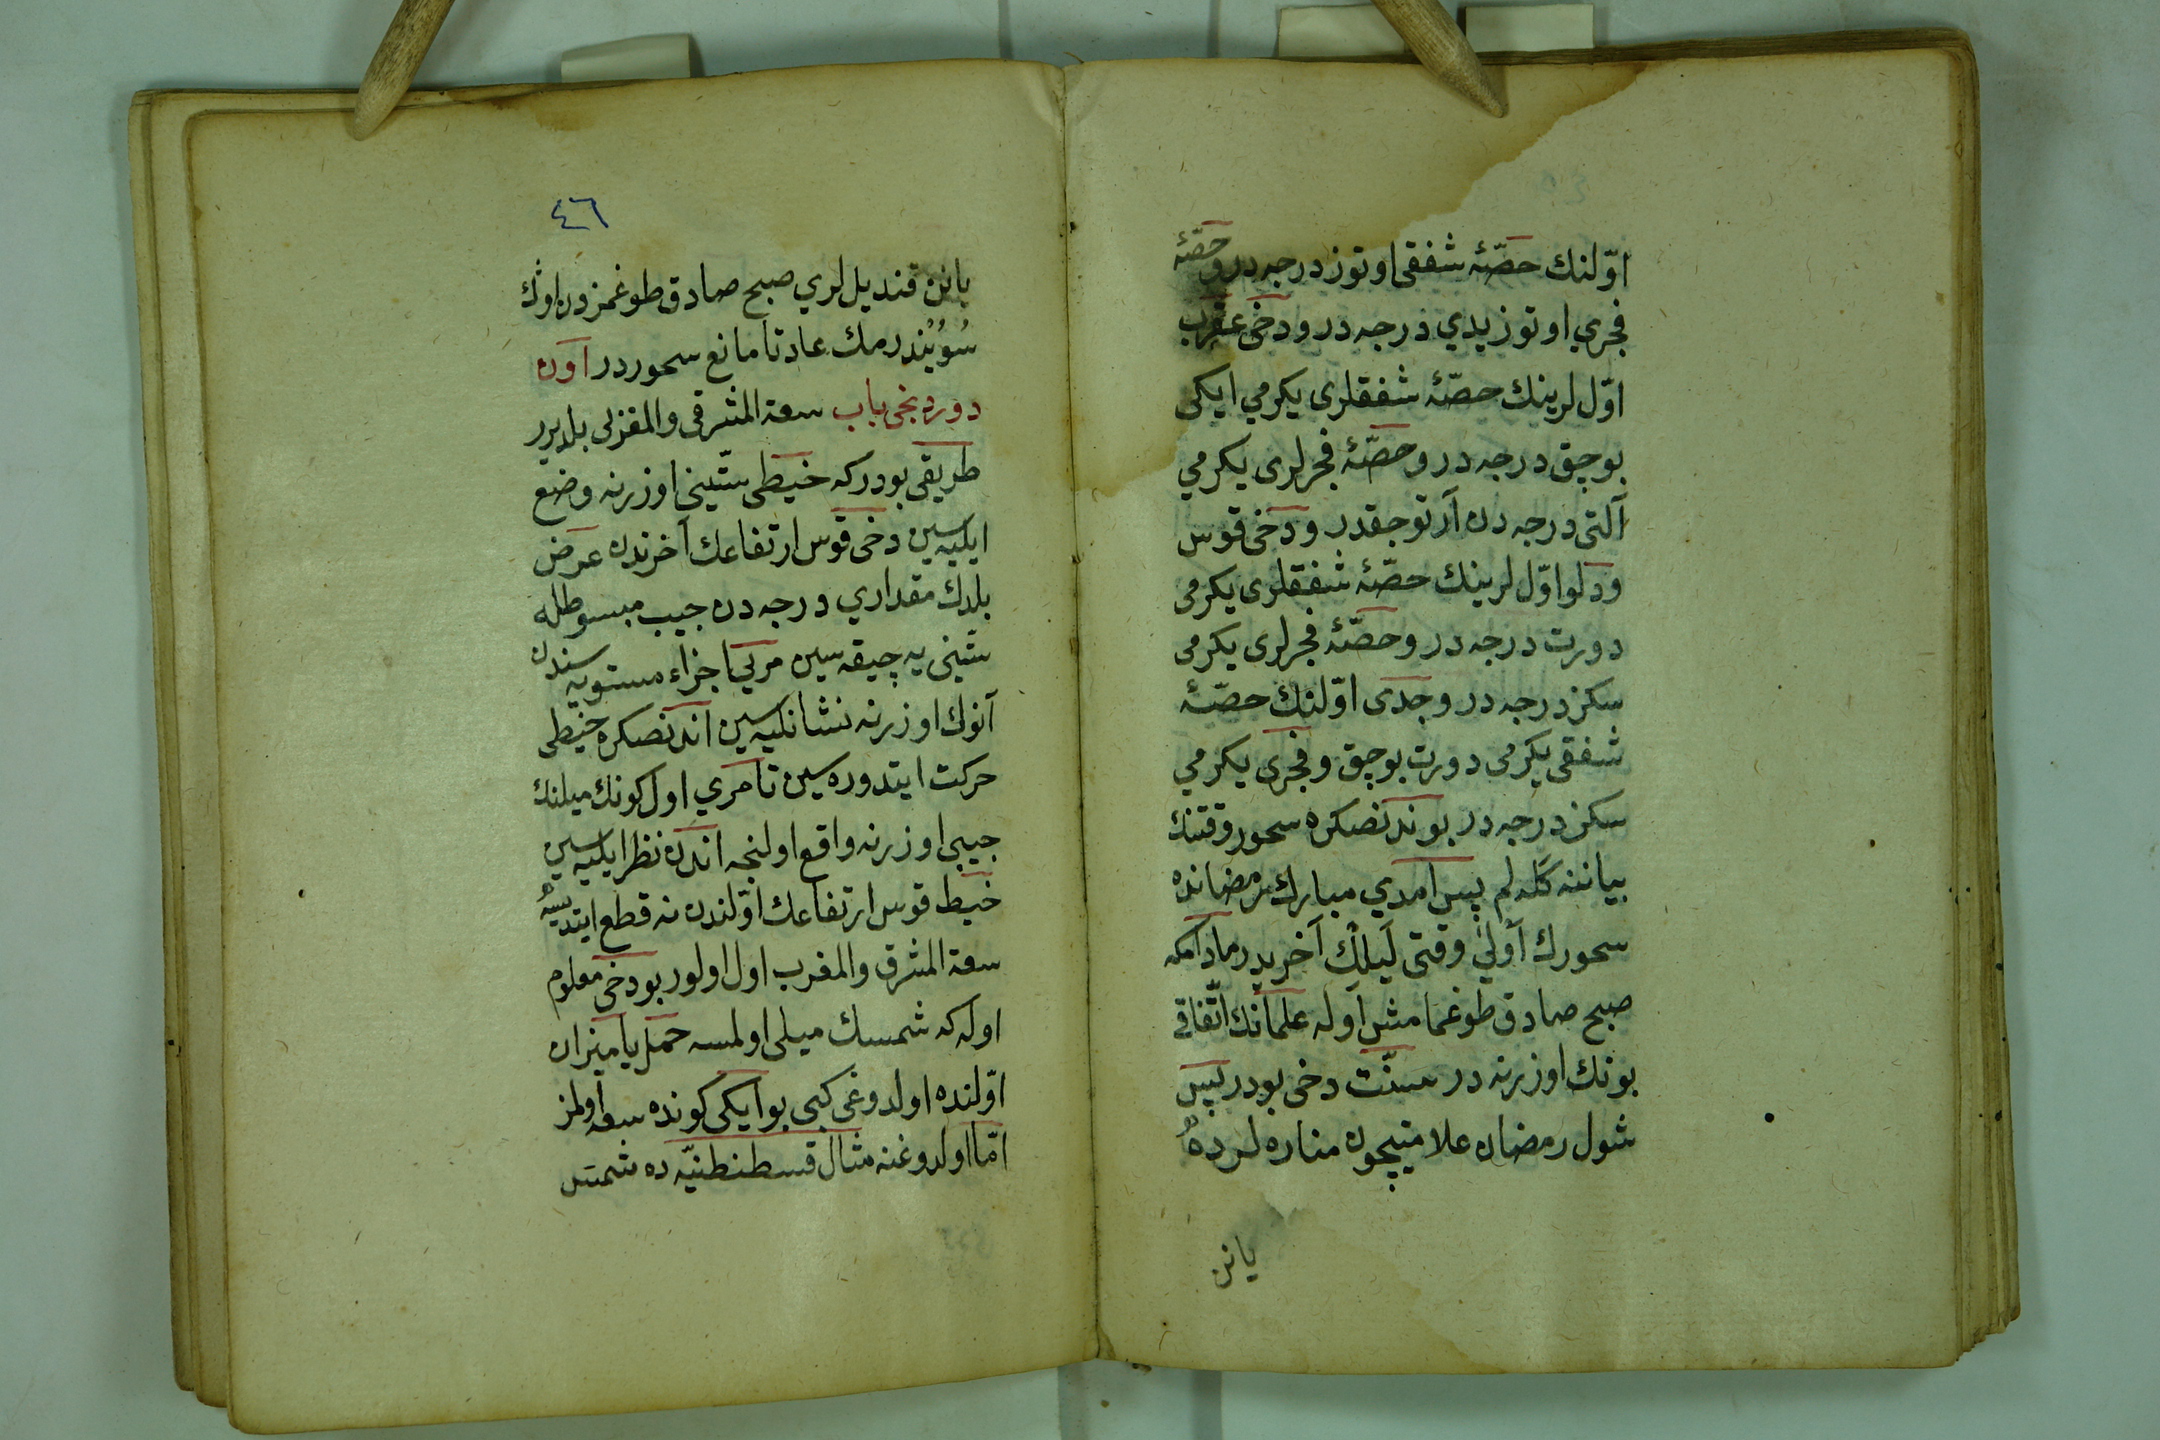 اوّلنك حصّهٔ شفقی اوتوز درجه در و حصّهٔ
فجری اوتوز یدي درجه در و دخی عقرب
اوّل لرینك حصّهٔ شفقلری یكرمي ایكی
بوچق درجه در و حصّهٔ فجرلری یكرمي
آلتی درجه دن آرتوجقدر و دخی قوس
و دلو اوّل لرینك حصّهٔ شفقلری یكرمی
دورت درجه در و حصّهٔ فجرلری یكرمی
سكز درجه در و جدی اوّلنك حصّهٔ
شفقی یكرمی دورت بوچق و فجری یكرمي
سكز درجه در بوندنصكره سحور وقتنك
بیاننه كله لم پس امدي مبارك رمضانده
سحورك أولیٰ وقتی لَیلڭ آخریدر مادامكه
صبح صادق طوغمامش اوله علمانك اتّفاقی
بونك اوزرنه در سنّت دخی بودر پس
شول رمضان علامتیچون مناره لرده
یانن
٤٦
یانن قندیل لري صبح صادق طوغمزدن اوڭ
سُوُیُندرمك عادتا مانع سحوردر اون
دوردنجی باب سعة المشرقی و المغربی بلدیرر
طریقی بودركه خیطی ستّینی اوزرنه وضع
ایلیه سین دخی قوس ارتفاعك آخرندن عرض
بلدك مقداري درجه دن جیب مبسوطله
ستّینی یه چیقه سین مریی اجزاء مستویه سندن
آنوك اوزرنه نشانلیه سین اندنصكره خیطی
حركت ایتدوره سین تا مري اول كونك میلنك
جیبی اوزرنه واقع اولنجه اندن نظر ایلیه سین
خیط قوس ارتفاعك اوّلندن نه قطع ایتدیسه
سعة المشرق و المغرب اول اولور بو دخی معلوم
اوله كه شمسك میلی اولمسه حمل یا میزان
اوّلنده اولدوغی كبی بو ایكی كونده سعه اولمز
امّا اولدوغنه مثال قسطنطنیّه ده شمس